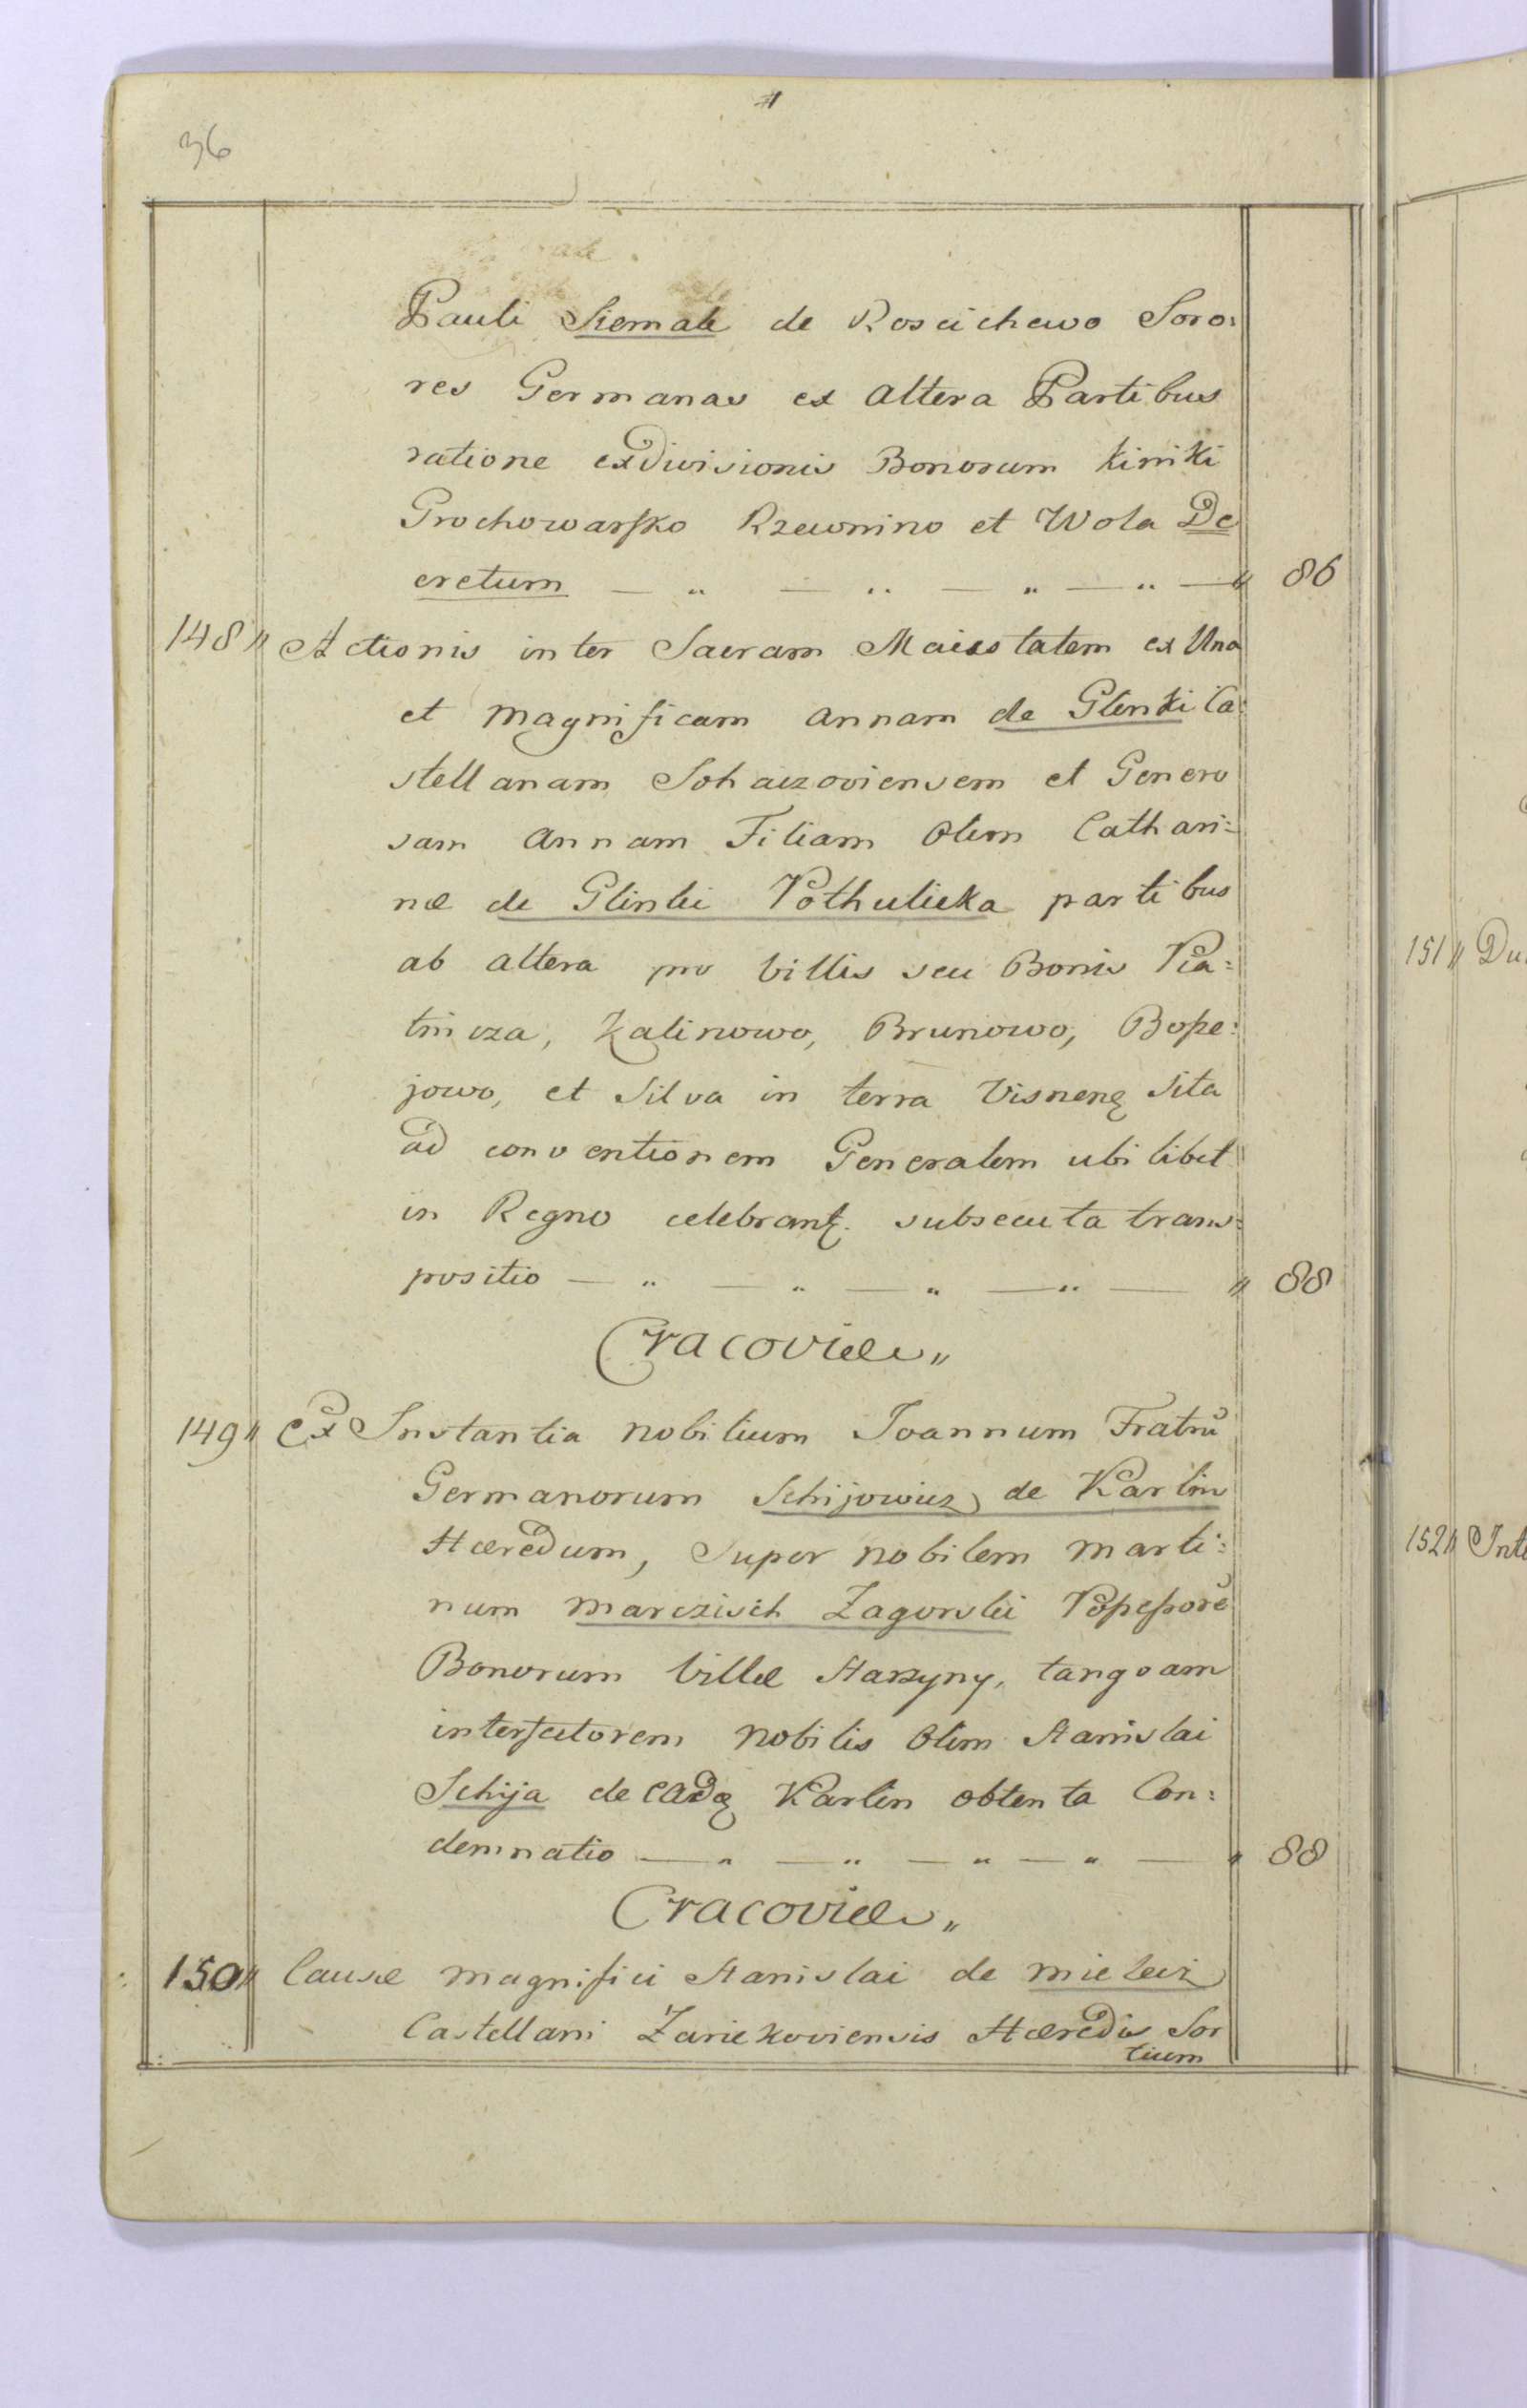 36
Pauli Siemale de Roscichewo Soro:
res Germanas ex altera Partibus
ratione exdivisionis Bonorum Kiniki
Grochowarsko Rzewnino et Wola De
cretum — „ — „ — „ — „ — „ 86
148„ Actionis inter Sacram Maiestatem ex Una
et Magnificam Annam de Glinki Ca:
stellanam Sohaczoviensem et Genero
sam Annam Filiam Olim Cathari:
næ de Glinki Pothulicka partibus
ab altera pro Villis seu Bonis Pia:
tnicza, Kalinowo, Brunowo, Bope:
jowo, et Silva in terra Visneng Sita
ad conventionem Generalem ubi libet
in Regno celebrant. subsecuta trans:
positio — „ — „ — „ — „ — „ 88
Cracoviæ„
149„ Ex Instantia Nobilium Joannum Fratrũ
Germanorum Schijowicz de Karlin
Hæredum, Super Nobilem Marti:
num Marczisch Zagorski Possessorẽ
Bonorum Villæ Starzyny, tanqoam
interfectorem Nobilis Olim Stanislai
Schija de eadg Karlin obtenta Con:
demnatio — „ — „ — „ — „ — „ 88
Cracoviæ„
150„ Causæ Magnifici Stanislai de Mielecz
Castellani Zariekoviensis Hæredis Sor
tium
151„ Du
152„ Int